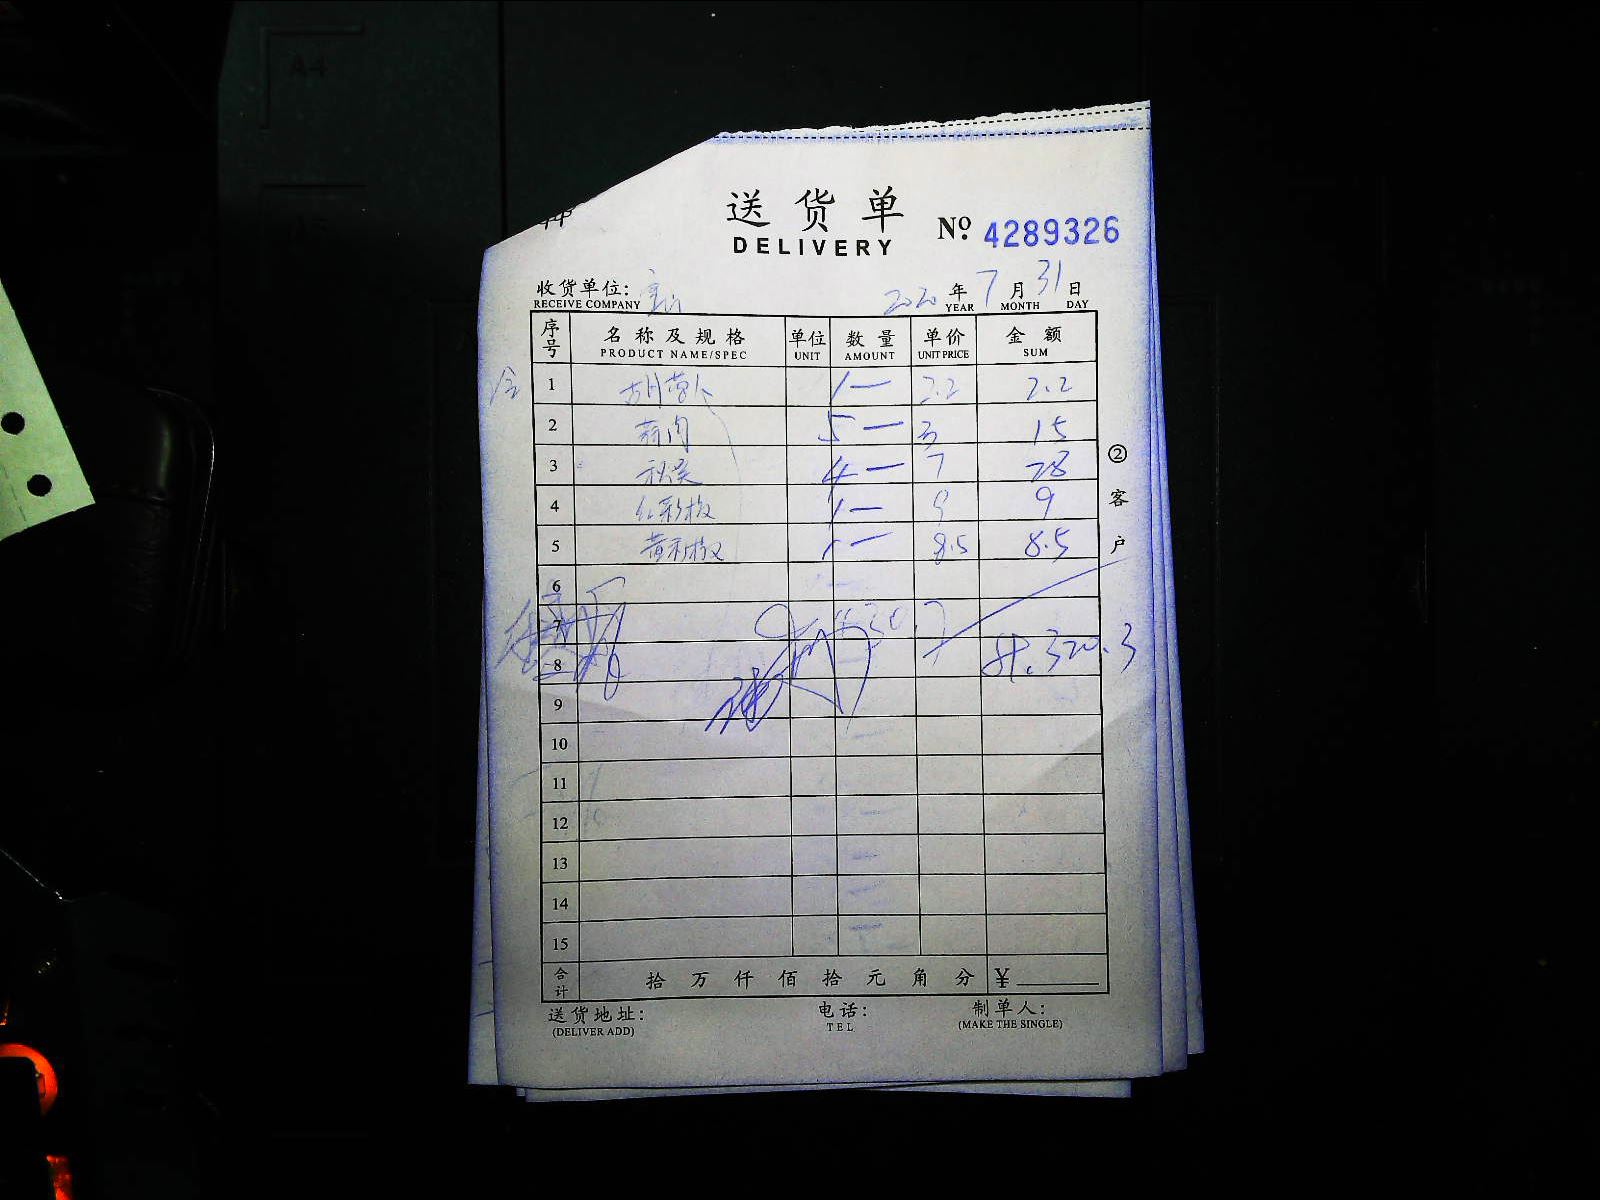 送货单
DELIVERY
No. 4289326
收货单位:
RECEIVE COMPANY
2020 年 7 月 31 日
YEAR MONTH DAY
序号 名称及规格 单位 数量 单价 金额
PRODUCT NAME/SPEC UNIT AMOUNT UNIT PRICE SUM
1 胡萝卜 1 — 2.2 2.2
2 5 — 3 15
3 秋葵 4 — 7 28
4 红彩椒 1 — 9 9
5 黄彩椒 1 — 8.5 8.5
6
7
8 320.3
9
10
11
12
13
14
15
合计 拾 万 仟 佰 拾 元 角 分 ¥
②客户
送货地址: 电话: 制单人:
(DELIVER ADD) TEL (MAKE THE SINGLE)
A4